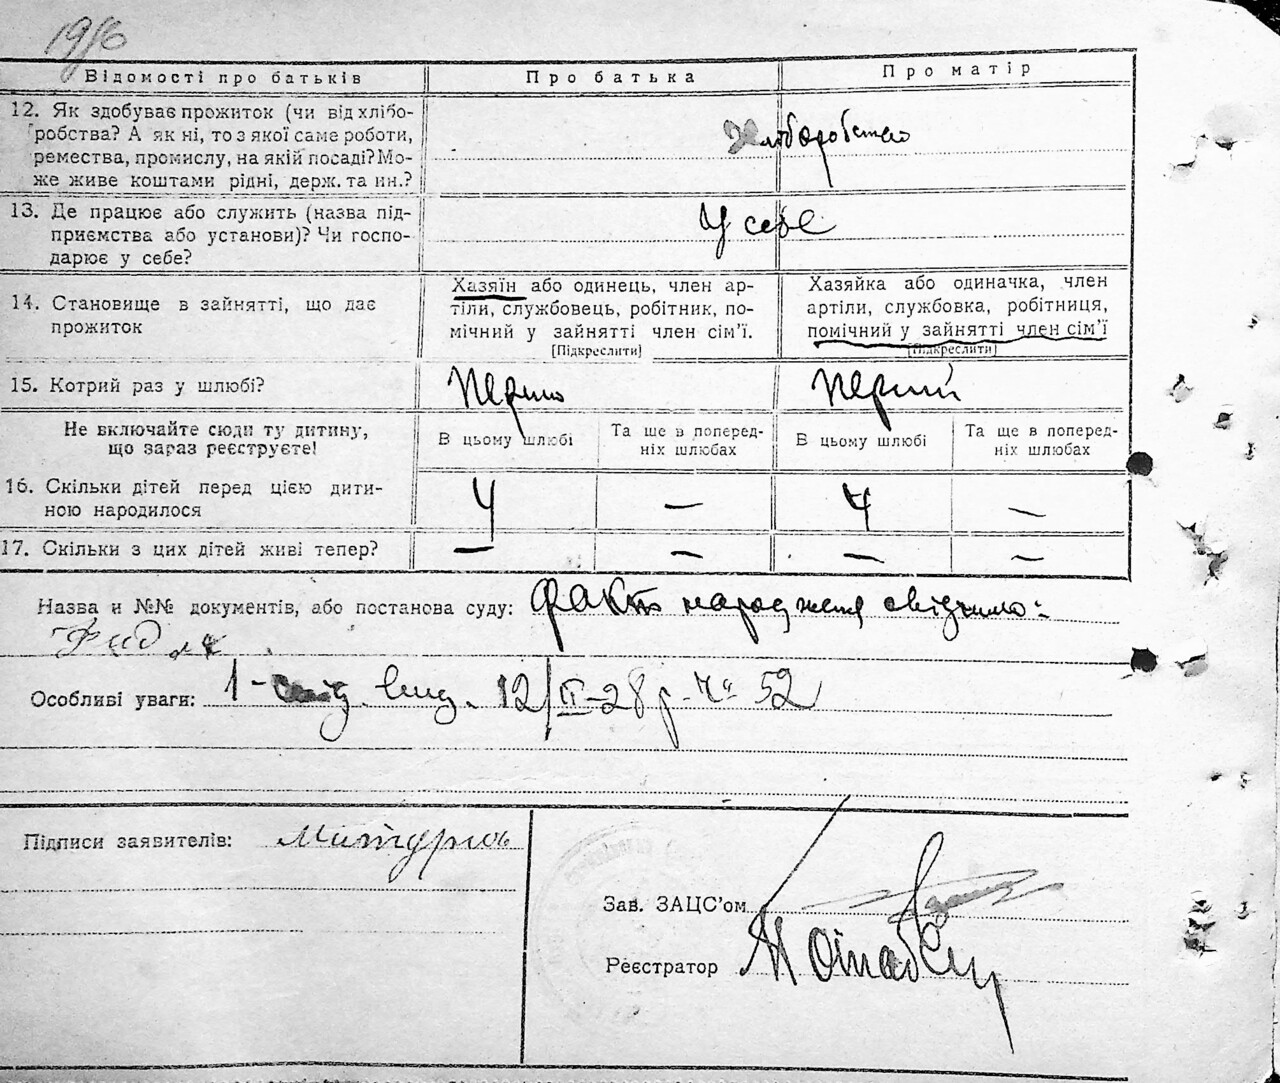 1916
Відомості про батьків
Про батька
Про матір
12. Як здобуває прожиток (чи від хлібо-
робства? А як ні, то з якої саме роботи,
ремества, промислу, на якій посаді? Мо-
же живе коштами рідні, держ. та ин.?
Хліборобство
13. Де працює або служить (назва під-
приємства або установи)? Чи госпо-
дарює у себе?
У себе
14. Становище в зайнятті, що дає
прожиток
Хазяїн або одинець, член ар-
тіли, службовець, робітник, по-
мічний у зайнятті член сім’ї.
[Підкреслити]
Хазяйка або одиначка, член
артіли, службовка, робітниця,
помічний у зайнятті член сім’ї
[Підкреслити]
15. Котрий раз у шлюбі?
Не включайте сюди ту дитину,
що зараз реєструєте!
В цьому шлюбі
Та ще в поперед-
ніх шлюбах
В цьому шлюбі
Та ще в поперед-
ніх шлюбах
16. Скільки дітей перед цією дити-
ною народилося
4 — 4 —
17. Скільки з цих дітей живі тепер?
— — — —
Назва й №№ документів, або постанова суду: Факт
Особливі уваги: 1 - 12/II-28 р. № 52
Підписи заявителів:
Зав. ЗАЦС’ом
Реєстратор